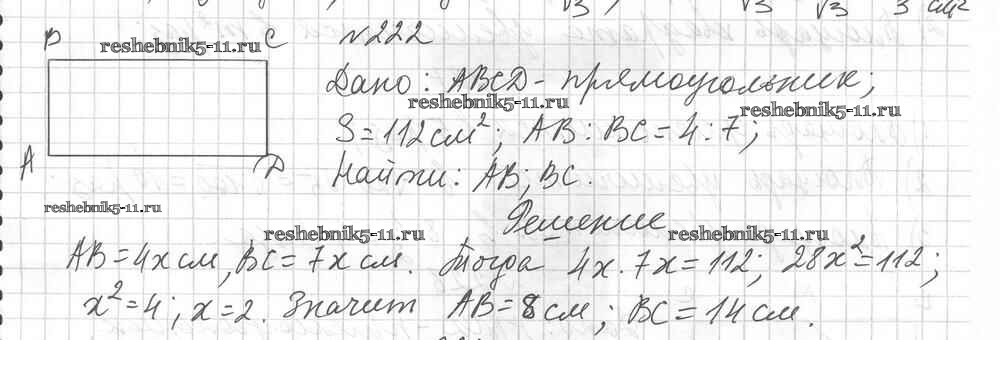 √3 √3 √3 3 см²
B C №222
reshebnik5-11.ru
Дано: ABCD - прямоугольник;
reshebnik5-11.ru reshebnik5-11.ru
S = 112 см²; AB : BC = 4 : 7;
A D Найти: AB; BC.
reshebnik5-11.ru
Решение
reshebnik5-11.ru reshebnik5-11.ru
AB = 4x см, BC = 7x см. Тогда 4x · 7x = 112; 28x² = 112;
x² = 4; x = 2. Значит AB = 8 см; BC = 14 см.